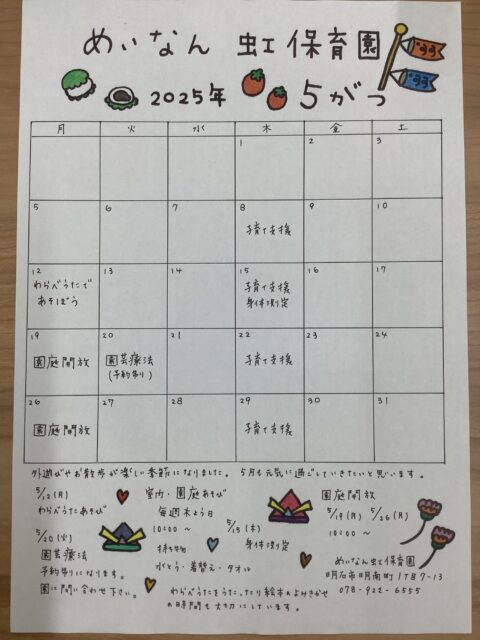 めいなん 虹保育園
2025年 5がつ
月 火 水 木 金 土
1 2 3
5 6 7 8 9 10
子育て支援
12 13 14 15 16 17
わらべうたで
あそぼう
子育て支援
身体測定
19 20 21 22 23 24
園庭開放
園芸療法
(予約制り)
子育て支援
26 27 28 29 30 31
園庭開放
子育て支援
外遊びやお散歩が楽しい季節になりました。5月も元気に過ごしていきたいと思います。
5/12(月)
わらべうたあそび
5/20(火)
園芸療法
予約制りになります。
園に問い合わせ下さい。
室内・園庭あそび
毎週木よう日
10:00~
持ち物
水とう・着替え・タオル
5/15(木)
身体測定
わらべうたをうたったり絵本のよみきかせ
の時間も大切にしています。
園庭開放
5/19(月) 5/26(月)
10:00~
めいなん虹保育園
明石市明南町1丁目7-13
078-922-6555